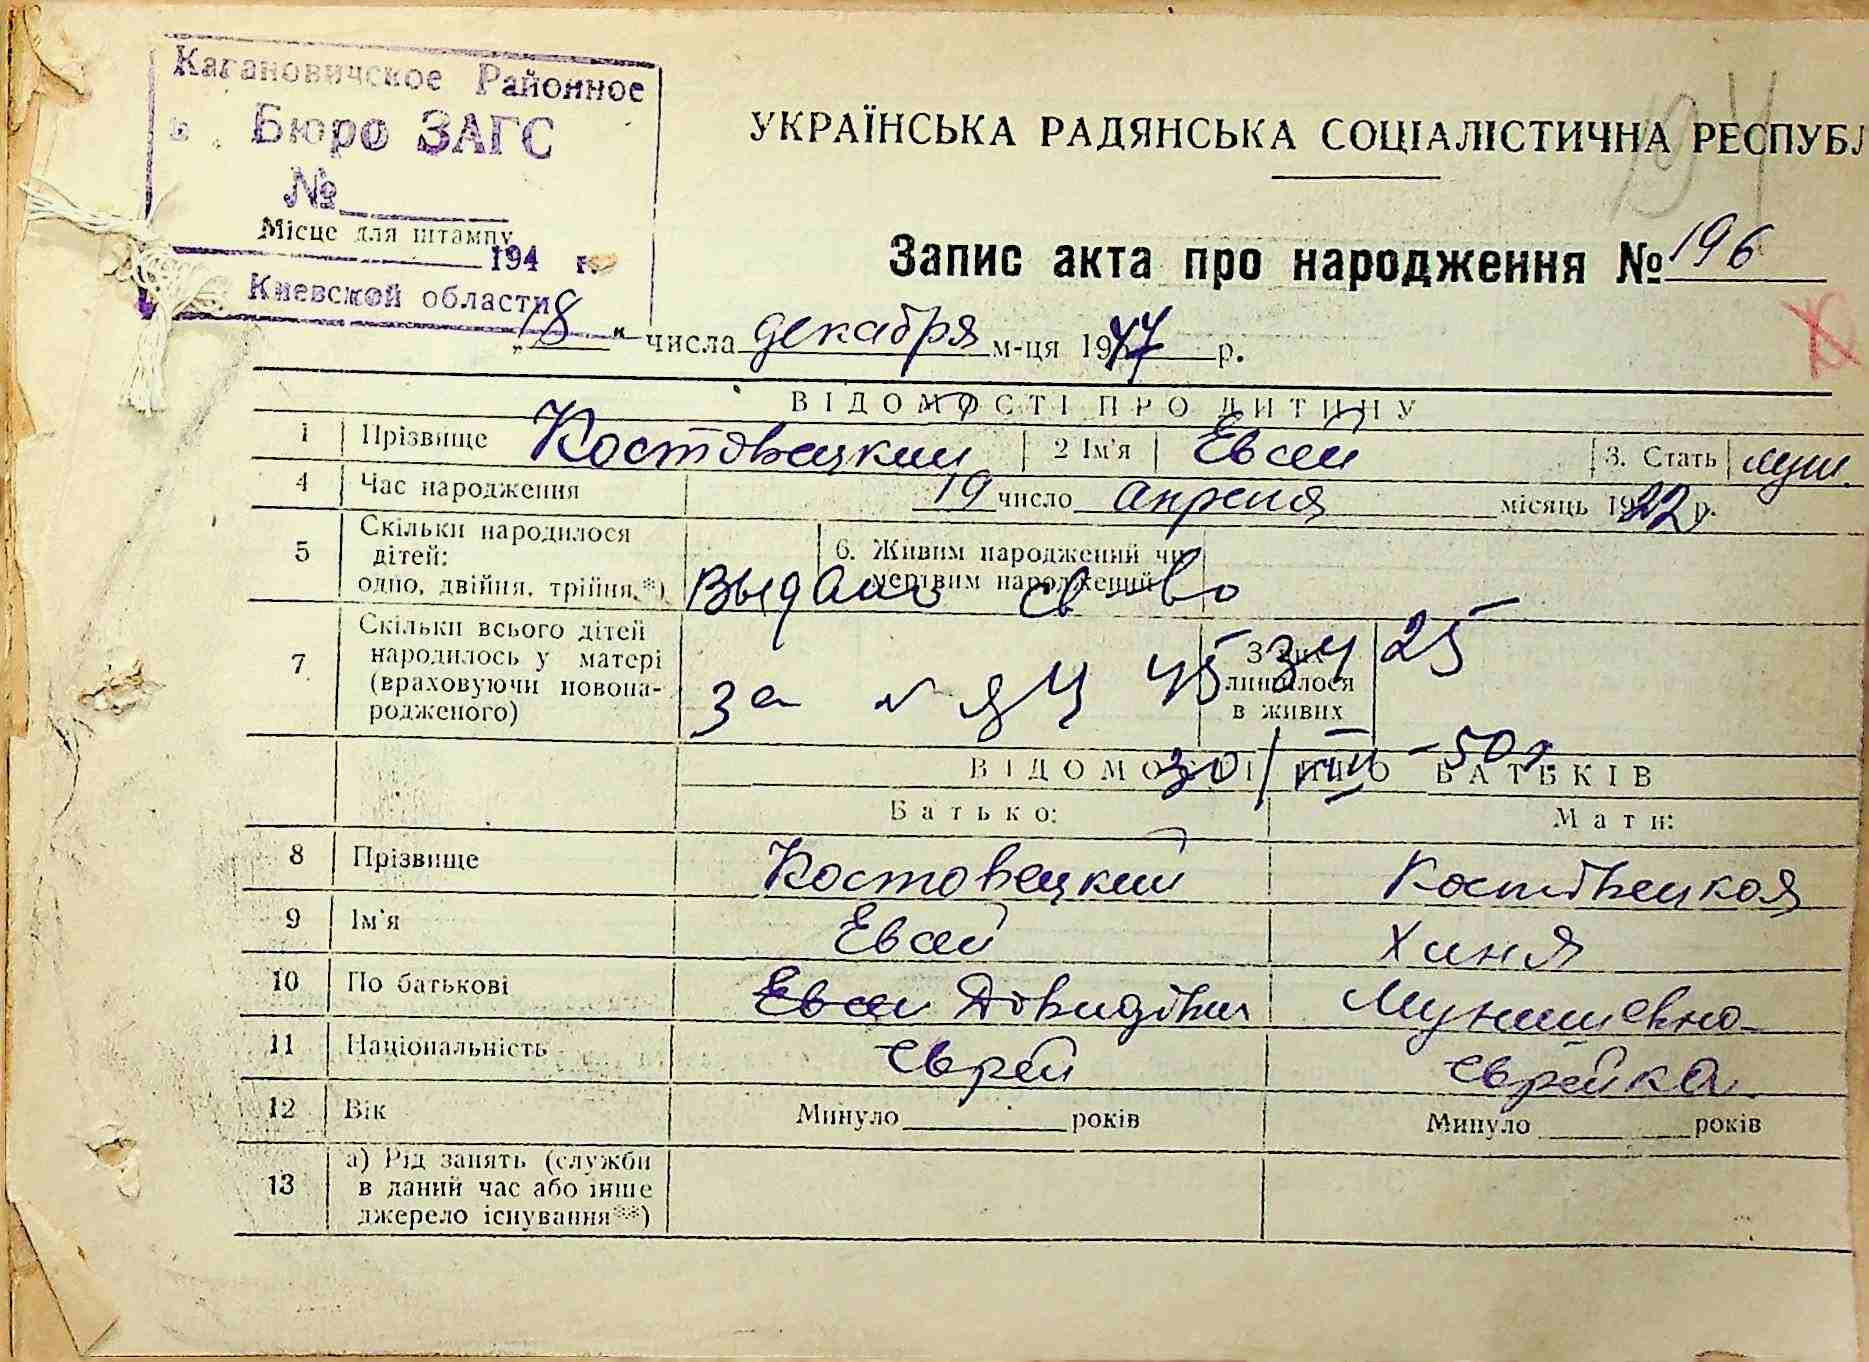 Кагановичское Районное
Бюро ЗАГС
№
Місце для штампу
194 г.
Киевской области
УКРАЇНСЬКА РАДЯНСЬКА СОЦІАЛІСТИЧНА РЕСПУБЛ
194
Запис акта про народження № 196
„18" числа декабря м-ця 1947 р.
ВІДОМОСТІ ПРО ДИТИНУ
1 Прізвище Костовецкий 2 Ім'я Евсей 3. Стать муж.
4 Час народження 19 число апреля місяць 1922 р.
5 Скільки народилося дітей: одно, двійня, трійня.*) 6. Живим народжений чи мертвим народжений
Выдано св-во
7 Скільки всього дітей народилось у матері (враховуючи новона-родженого) З них лишилося в живих
за № ЯЦ 453425
30/VIII-50 г.
ВІДОМОСТІ ПРО БАТЬКІВ
Батько: Мати:
8 Прізвище Костовецкий Костовецкая
9 Ім'я Евсей Хиня
10 По батькові Евсеи Довидович
11 Національність еврей еврейка
12 Вік Минуло років Минуло років
13 а) Рід занять (служби в даний час або інше джерело існування**)